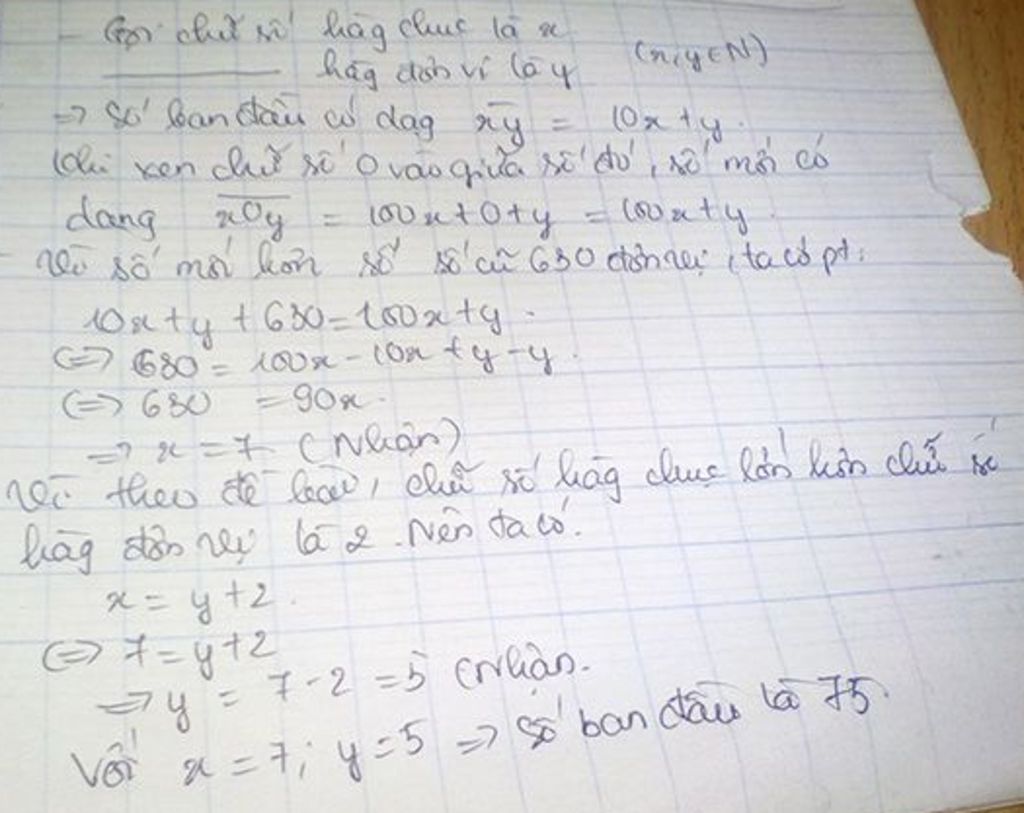 - Gọi chữ số hàg chục là x
hàg đơn vị là y (x,y ∈ N)
=> Số ban đầu có dạg xy̅ = 10x + y.
Khi xen chữ số 0 vào giữa số đó, số mới có
dạng x0y̅ = 100x + 0 + y = 100x + y.
- Vì số mới hơn số số cũ 630 đơn vị, ta có pt:
10x + y + 630 = 100x + y.
<=> 630 = 100x - 10x + y - y.
<=> 630 = 90x.
=> x = 7 (Nhận)
Vì theo đề, chữ số hàg chục lớn hơn chữ số
hàg đơn vị là 2. Nên ta có.
x = y + 2.
<=> 7 = y + 2
=> y = 7 - 2 = 5 (Nhận.
Với x = 7; y = 5 => Số ban đầu là 75.